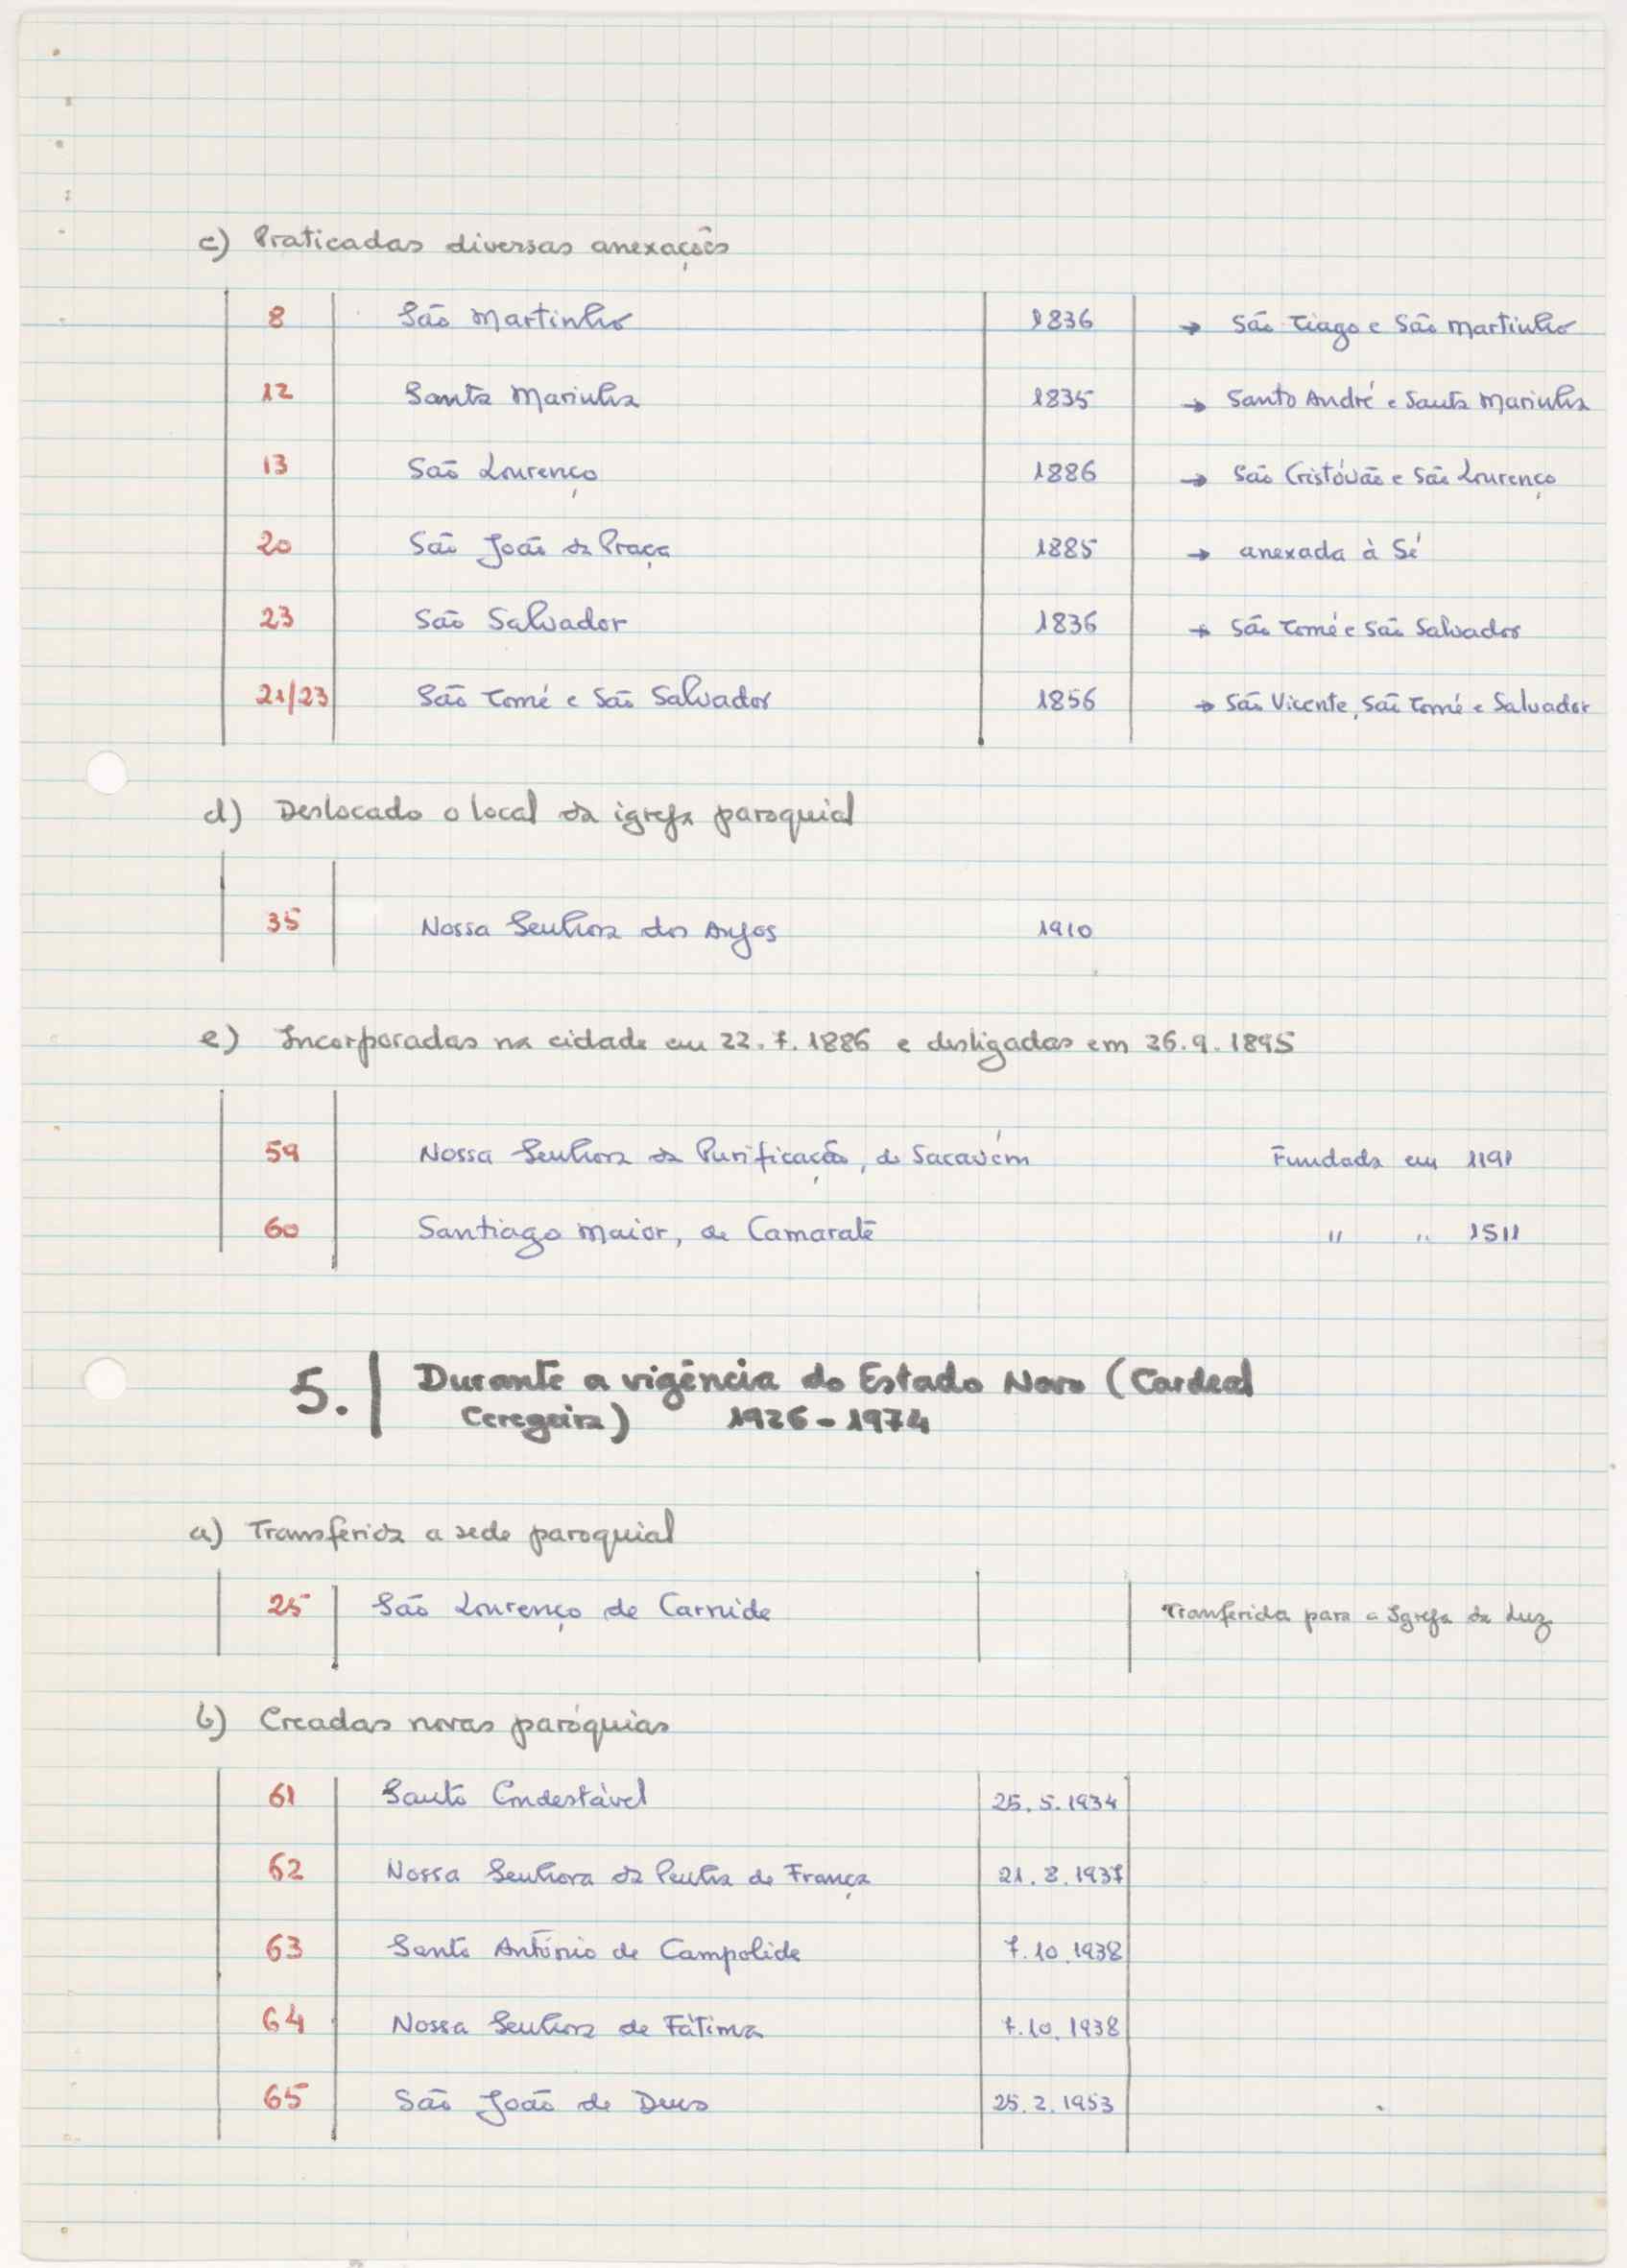 c) Praticadas diversas anexações
8 São Martinho 1836 → São Tiago e São Martinho
12 Santa Marinha 1835 → Santo André e Santa Marinha
13 São Lourenço 1886 → São Cristóvão e São Lourenço
20 São João da Praça 1885 → anexada à Sé
23 São Salvador 1836 → São Tomé e São Salvador
21/23 São Tomé e São Salvador 1856 → São Vicente, São Tomé e Salvador
d) Deslocado o local da igreja paroquial
35 Nossa Senhora dos Anjos 1910
e) Incorporadas na cidade em 22.7.1886 e desligadas em 26.9.1895
59 Nossa Senhora da Purificação, de Sacavém Fundada em 1191
60 Santiago Maior, de Camarate " " 1511
5. Durante a vigência do Estado Novo (Cardeal
Ceregeira) 1926-1974
a) Transferida a sede paroquial
25 São Lourenço de Carnide Tranferida para a Igreja da Luz
b) Creadas novas paróquias
61 Santo Condestável 25.5.1934
62 Nossa Senhora da Penha de França 21.8.1937
63 Santo António de Campolide 7.10.1938
64 Nossa Senhora de Fátima 7.10.1938
65 São João de Deus 25.2.1953